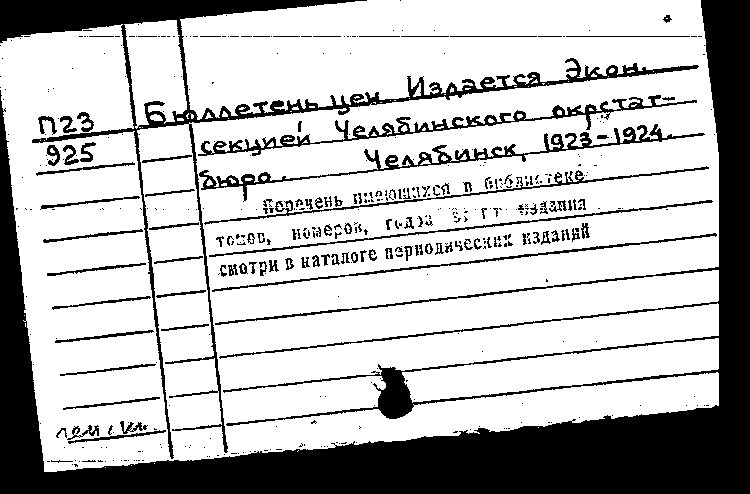 П23 Бюллетень цен Издается Экон.
925 секцией Челябинского окрстат-
бюро. Челябинск, 1923-1924.
Перечень имеющихся в библиотеке
томов, номеров, года издания
смотри в каталоге периодических изданий